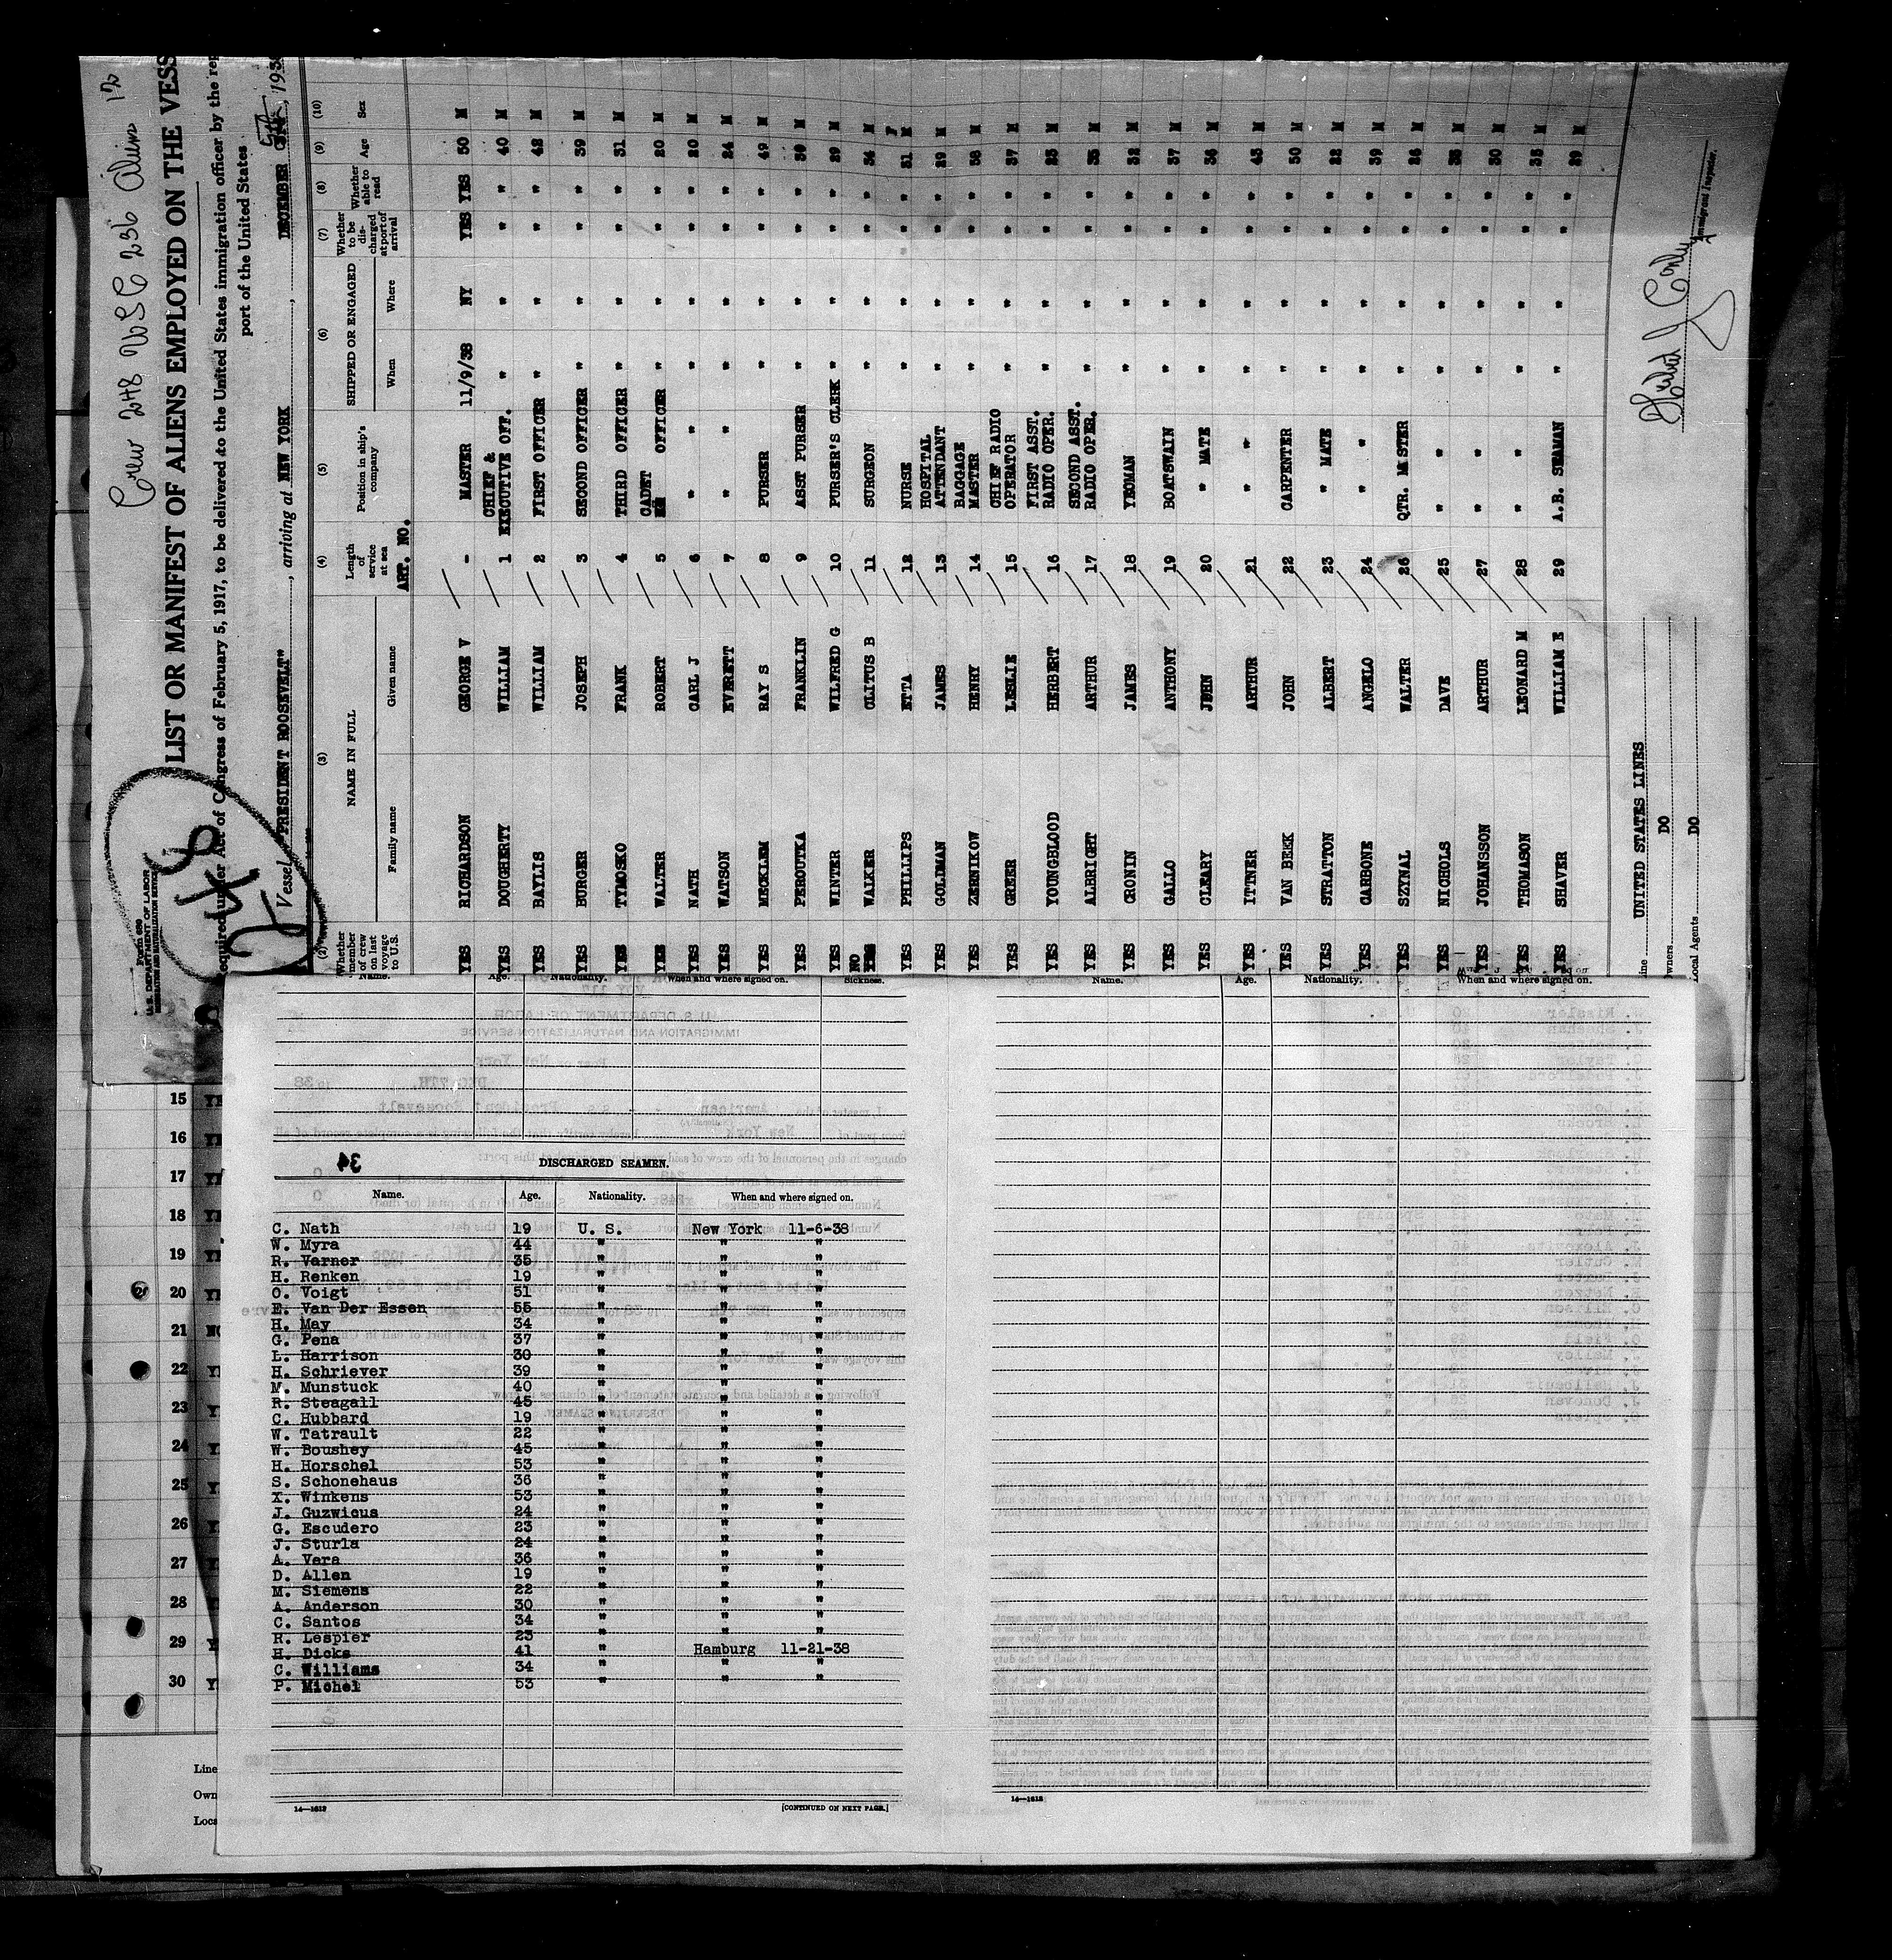 Crew 248 USC 236 Aliens 12
Form 689
U.S. DEPARTMENT OF LABOR
IMMIGRATION AND NATURALIZATION SERVICE
248
LIST OR MANIFEST OF ALIENS EMPLOYED ON THE VESS
Required under Act of Congress of February 5, 1917, to be delivered to the United States immigration officer by the rep
port of the United States
Vessel "PRESIDENT ROOSEVELT", arriving at NEW YORK, DECEMBER 5th, 193
(2) (3) (4) (5) (6) (7) (8) (9) (10)
Whether member of crew on last voyage to U.S. NAME IN FULL Length of service at sea Position in ship's company SHIPPED OR ENGAGED Whether to be discharged at port of arrival Whether able to read Age Sex
Family name Given name When Where
ART. NO.
YES RICHARDSON GEORGE V - MASTER 11/9/38 NY YES YES 50 M
YES DOUGHERTY WILLIAM 1 CHIEF & EXECUTIVE OFF. " " " " 40 M
YES BAYLIS WILLIAM 2 FIRST OFFICER " " " " 42 M
YES BURGER JOSEPH 3 SECOND OFFICER " " " " 39 M
YES TYMOSKO FRANK 4 THIRD OFFICER " " " " 31 M
YES WALTER ROBERT 5 CADET OFFICER " " " " 20 M
YES NATH CARL J 6 " " " " " " 20 M
YES WATSON EVERETT 7 " " " " " " 24 M
YES MECKLEM RAY S 8 PURSER " " " " 49 M
YES PEROUTKA FRANKLIN 9 ASST PURSER " " " " 30 M
YES WINTER WILFRED G 10 PURSER'S CLERK " " " " 29 M
NO WALKER CLITUS B 11 SURGEON " " " " 34 M
YES PHILLIPS ETTA 12 NURSE " " " " 51 F
YES GOLDMAN JAMES 13 HOSPITAL ATTENDANT " " " " 29 M
YES ZERNIKOW HENRY 14 BAGGAGE MASTER " " " " 58 M
YES GREER LESLIE 15 CHIEF RADIO OPERATOR " " " " 37 M
YES YOUNGBLOOD HERBERT 16 FIRST ASST. RADIO OPER. " " " " 25 M
YES ALBRIGHT ARTHUR 17 SECOND ASST. RADIO OPER. " " " " 35 M
YES CRONIN JAMES 18 YEOMAN " " " " 32 M
YES GALLO ANTHONY 19 BOATSWAIN " " " " 37 M
YES CLEARY JOHN 20 " MATE " " " " 36 M
YES ITTNER ARTHUR 21 " " " " " " 43 M
YES VAN BEEK JOHN 22 CARPENTER " " " " 50 M
YES STRATTON ALBERT 23 " MATE " " " " 22 M
YES CARBONE ANGELO 24 " " " " " " 39 M
YES SZYNAL WALTER 26 QTR. MASTER " " " " 26 M
YES NICHOLS DAVE 25 " " " " " M
YES JOHANSSON ARTHUR 27 " " " " " 30 M
YES THOMASON LEONARD M 28 " " " " " 35 M
YES SHAVER WILLIAM E 29 A.B. SEAMAN " " " " 29 M
Line UNITED STATES LINES
Owners DO
Local Agents DO
Immigrant Inspector.
Name. Age. Nationality. When and where signed on. Sickness.
Name. Age. Nationality. When and where signed on.
34 DISCHARGED SEAMEN.
Name. Age. Nationality. When and where signed on.
C. Nath 19 U. S. New York 11-6-38
W. Myra 44 " " "
R. Varner 35 " " "
H. Renken 19 " " "
O. Voigt 51 " " "
E. Van Der Essen 55 " " "
H. May 34 " " "
G. Pena 37 " " "
L. Harrison 30 " " "
H. Schriever 39 " " "
M. Munstuck 40 " " "
R. Steagall 45 " " "
C. Hubbard 19 " " "
W. Tatrault 22 " " "
W. Boushey 45 " " "
H. Horschel 53 " " "
S. Schonehaus 36 " " "
X. Winkens 53 " " "
J. Guzwicus 24 " " "
G. Escudero 23 " " "
J. Sturla 24 " " "
A. Vera 36 " " "
D. Allen 19 " " "
M. Siemens 22 " " "
A. Anderson 30 " " "
C. Santos 34 " " "
R. Lespier 23 " " "
H. Dicks 41 " Hamburg 11-21-38
C. Williams 34 " " "
P. Michel 53 " " "
14—1613 [CONTINUED ON NEXT PAGE.]
14—1613
15
16
17
18
19
20
21
22
23
24
25
26
27
28
29
30
Line
Own
Loca